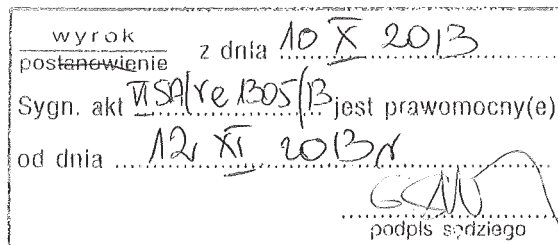 wyrok
postanowienie z dnia 10 X 2013
Sygn. akt VI SA/Wa 1305/13 jest prawomocny(e)
od dnia 12 XI 2013 r
podpis sędziego